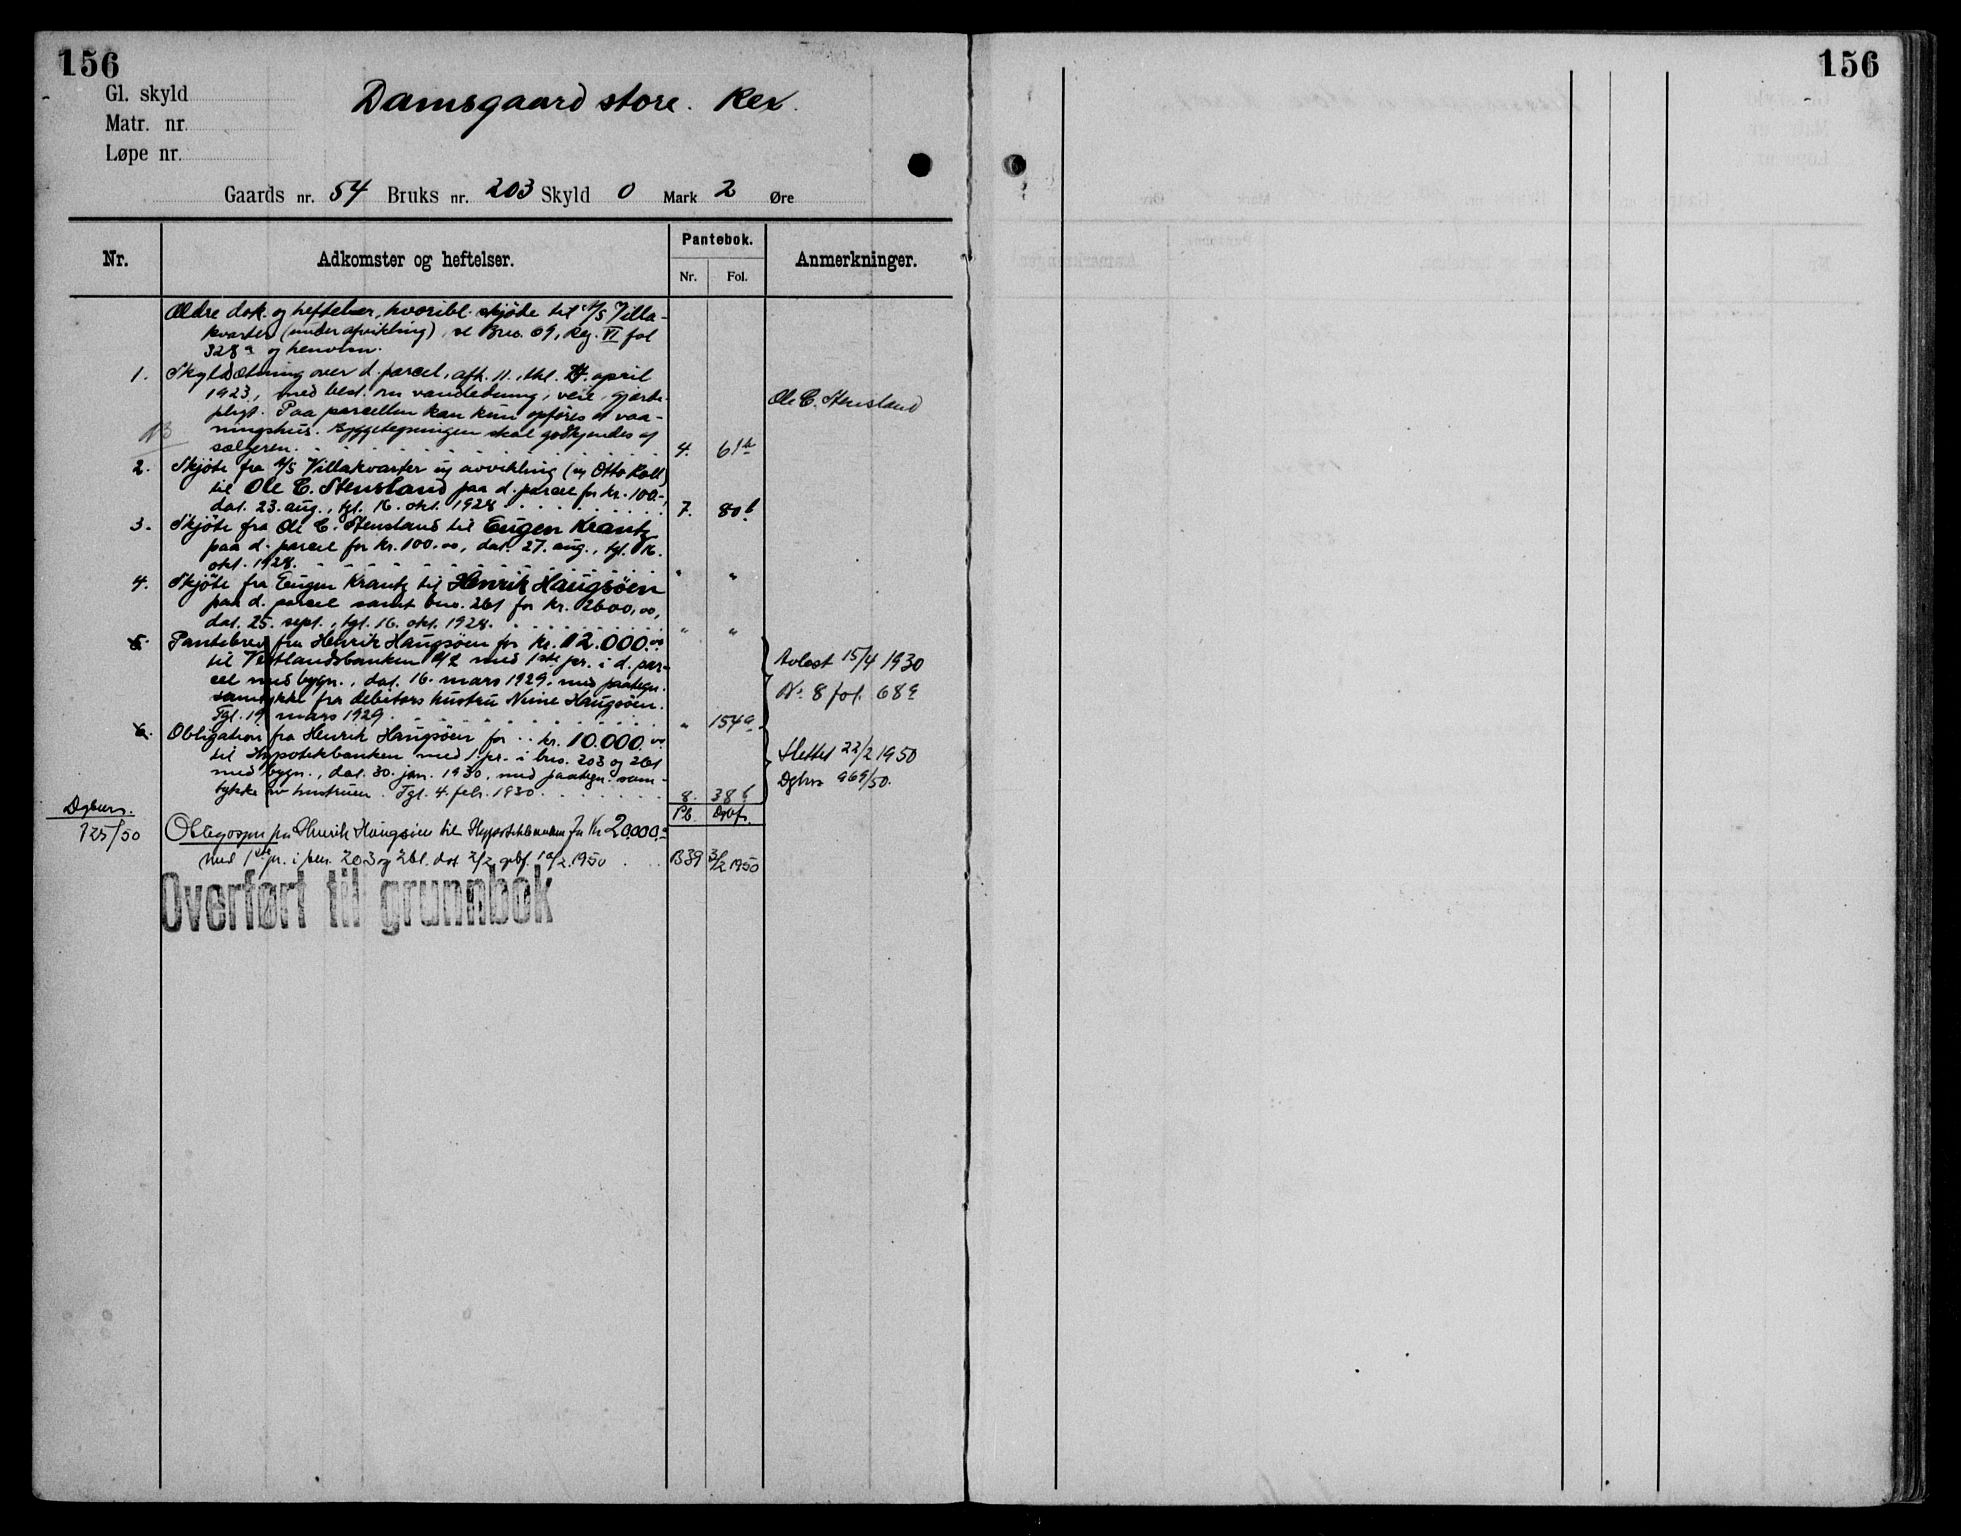 156
156
Gl. skyld
Damsgaard store. Rev.
Matr. nr.
Løpe nr.
Gaards nr. 54 Bruks nr. 203 Skyld 0 Mark 2 Øre
Nr. Adkomster og heftelser. Pantebok. Anmerkninger.
Nr. Fol.
Ældre dok. og heftelser, hvoribl. skjøte til A/S Villa-
kvarter (under afvikling), se Brno. 09, Reg. VI fol
328a og henvisn.
1. Skyldsætning over d. parcel, afh. 11., tkl. april
1923, med best. om vandledning, veie, gjærde-
pligt. Paa parcellen kan kun opføres et vaa-
Ole C. Stensland
NB
ningshus. Byggetegningen skal godkjendes af
sælgeren. 4. 61b
2. Skjøte fra A/S Villakvarter u/ avvikling (v/ Otto Kall)
til Ole C. Stensland paa d. parcel for kr. 100.-,
dat. 23. aug., tgl. 16. okt. 1928 7. 80b
3. Skjøte fra Ole C. Stensland til Eugen Krantz
paa d. parcel for kr. 100.00, dat. 27. aug., tgl. 16.
okt. 1928. " "
4. Skjøte fra Eugen Krantz til Henrik Haugsøen
paa d. parcel samt bno. 261 for kr. 2600,00,
dat. 25. sept., tgl. 16. okt. 1928. " "
5. Pantebrev fra Henrik Haugsøen for kr. 12.000.00
til Vestlandsbanken A/L med 1ste pr. i d. par-
cel med bygn., dat. 16. mars 1929, med paategn.
samtykke fra debitors hustru Nine Haugsøen.
Tgl. 19 mars 1929. " 154a
Avlest 15/4 1930
No 8 fol. 68a
6. Obligation fra Henrik Haugsøen for kr. 10.000.00
til Hypotekbanken med 1. pr. i bno. 203 og 261
med bygn., dat. 30. jan. 1930, med paategn. sam-
tykke av hustruen. Tgl. 4. febr. 1930. 8. 38b
Slettet 22/2 1950
Dgbnr 969/50.
Dgbnr. Pb. Dgbf.
725/50 Obligasjon fra Henrik Haugsøen til Hypotekbanken for Kr 20.000.-
med 1ste pr. i bnr. 203 og 261. dat 2/2 1950 B39 3/2 1950
Overført til grunnbok